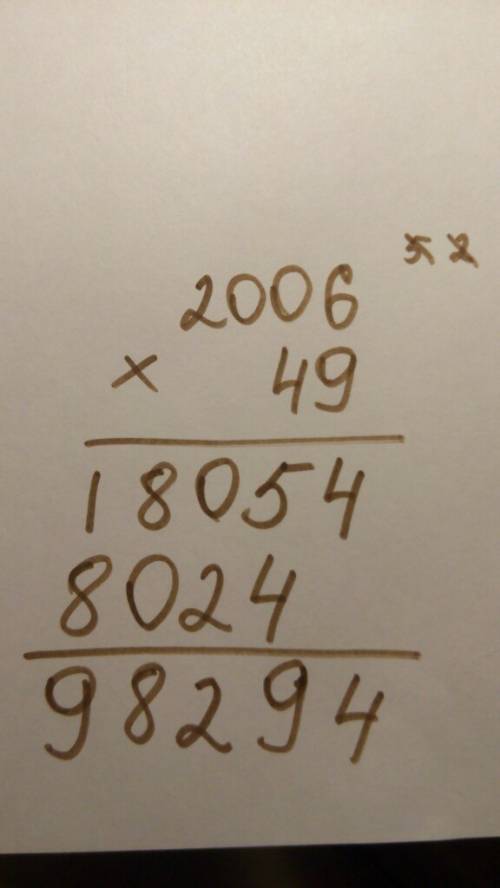 5 2
2006
× 49
18054
8024
98294